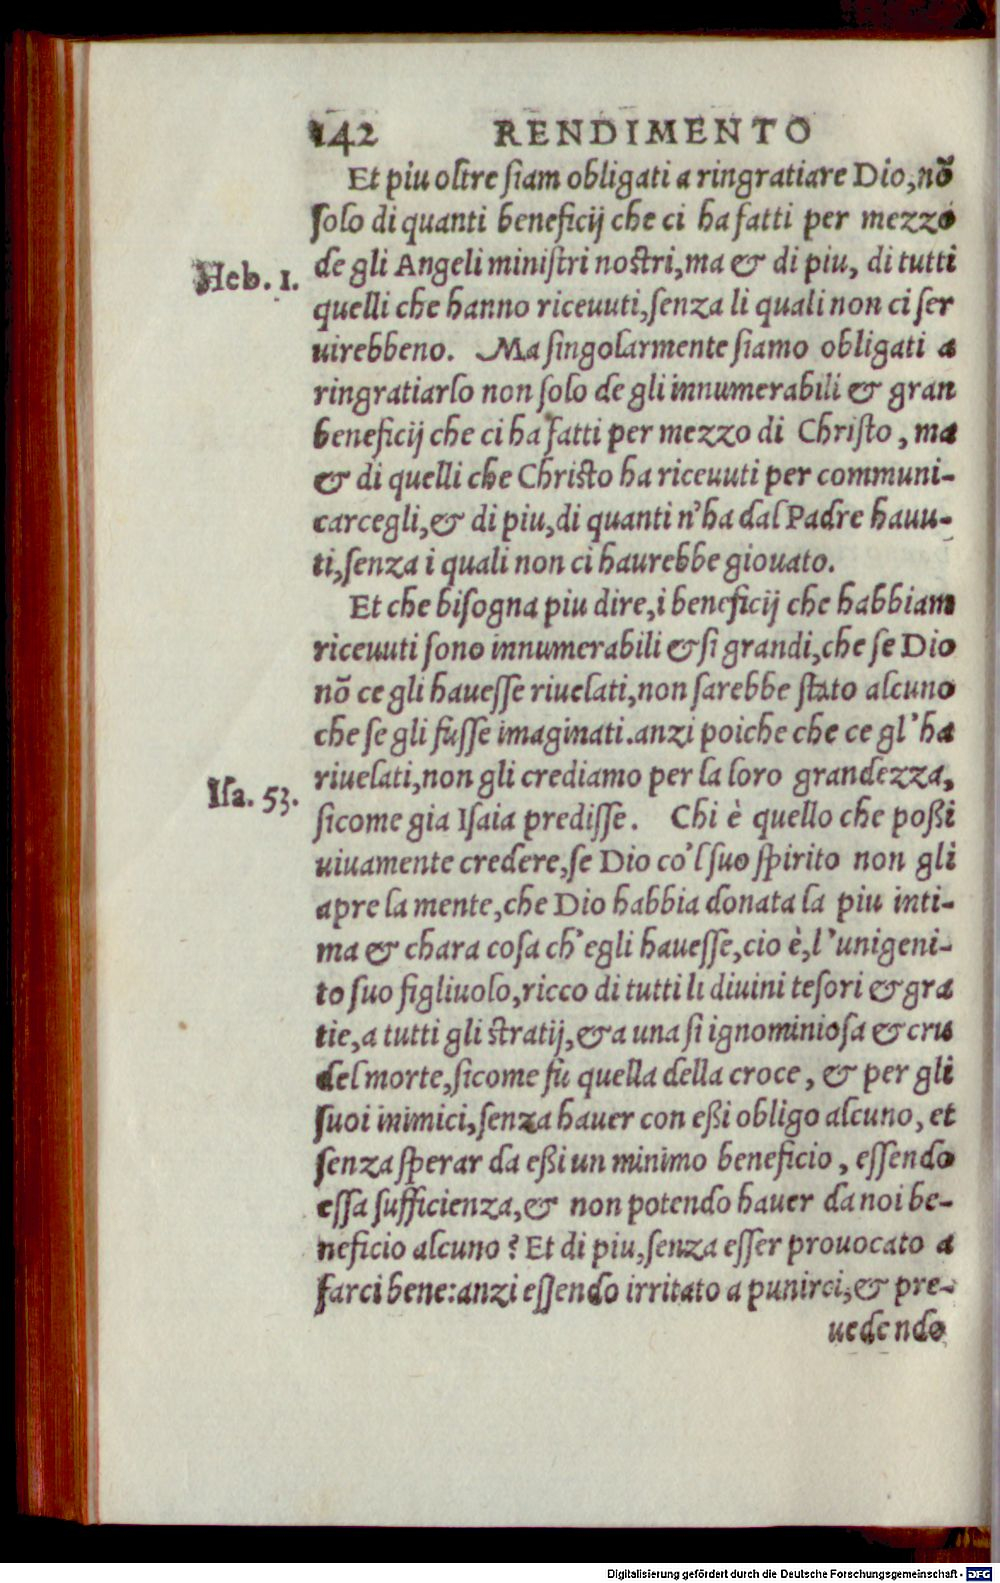 142 RENDIMENTO
Et piu oltre ſiam obligati a ringratiare Dio, nõ
ſolo di quanti beneficij che ci ha fatti per mezzo
Heb. 1.
de gli Angeli miniſtri noſtri, ma & di piu, di tutti
quelli che hanno riceuuti, ſenza li quali non ci ſer
uirebbeno. Ma ſingolarmente ſiamo obligati a
ringratiarlo non ſolo de gli innumerabili & gran
beneficij che ci ha fatti per mezzo di Chriſto, ma
& di quelli che Chriſto ha riceuuti per communi-
carcegli, & di piu, di quanti n'ha dal Padre hauu-
ti, ſenza i quali non ci haurebbe giouato.
Et che biſogna piu dire, i beneficij che habbiam
riceuuti ſono innumerabili & ſi grandi, che ſe Dio
nõ ce gli haueſſe riuelati, non ſarebbe ſtato alcuno
che ſe gli fuſſe imaginati. anzi poiche che ce gl'ha
riuelati, non gli crediamo per la loro grandezza,
Iſa. 53.
ſicome gia Iſaia prediſſe. Chi è quello che poßi
uiuamente credere, ſe Dio co'l ſuo ſpirito non gli
apre la mente, che Dio habbia donata la piu inti-
ma & chara coſa ch'egli haueſſe, cio è, l'unigeni-
to ſuo figliuolo, ricco di tutti li diuini teſori & gra
tie, a tutti gli ſtratij, & a una ſi ignominioſa & cru
del morte, ſicome fù quella della croce, & per gli
ſuoi inimici, ſenza hauer con eßi obligo alcuno, et
ſenza ſperar da eßi un minimo beneficio, eſſendo
eſſa ſufficienza, & non potendo hauer da noi be-
neficio alcuno? Et di piu, ſenza eſſer prouocato a
farci bene: anzi eſſendo irritato a punirci, & pre-
uedendo
Digitalisierung gefördert durch die Deutsche Forschungsgemeinschaft - DFG